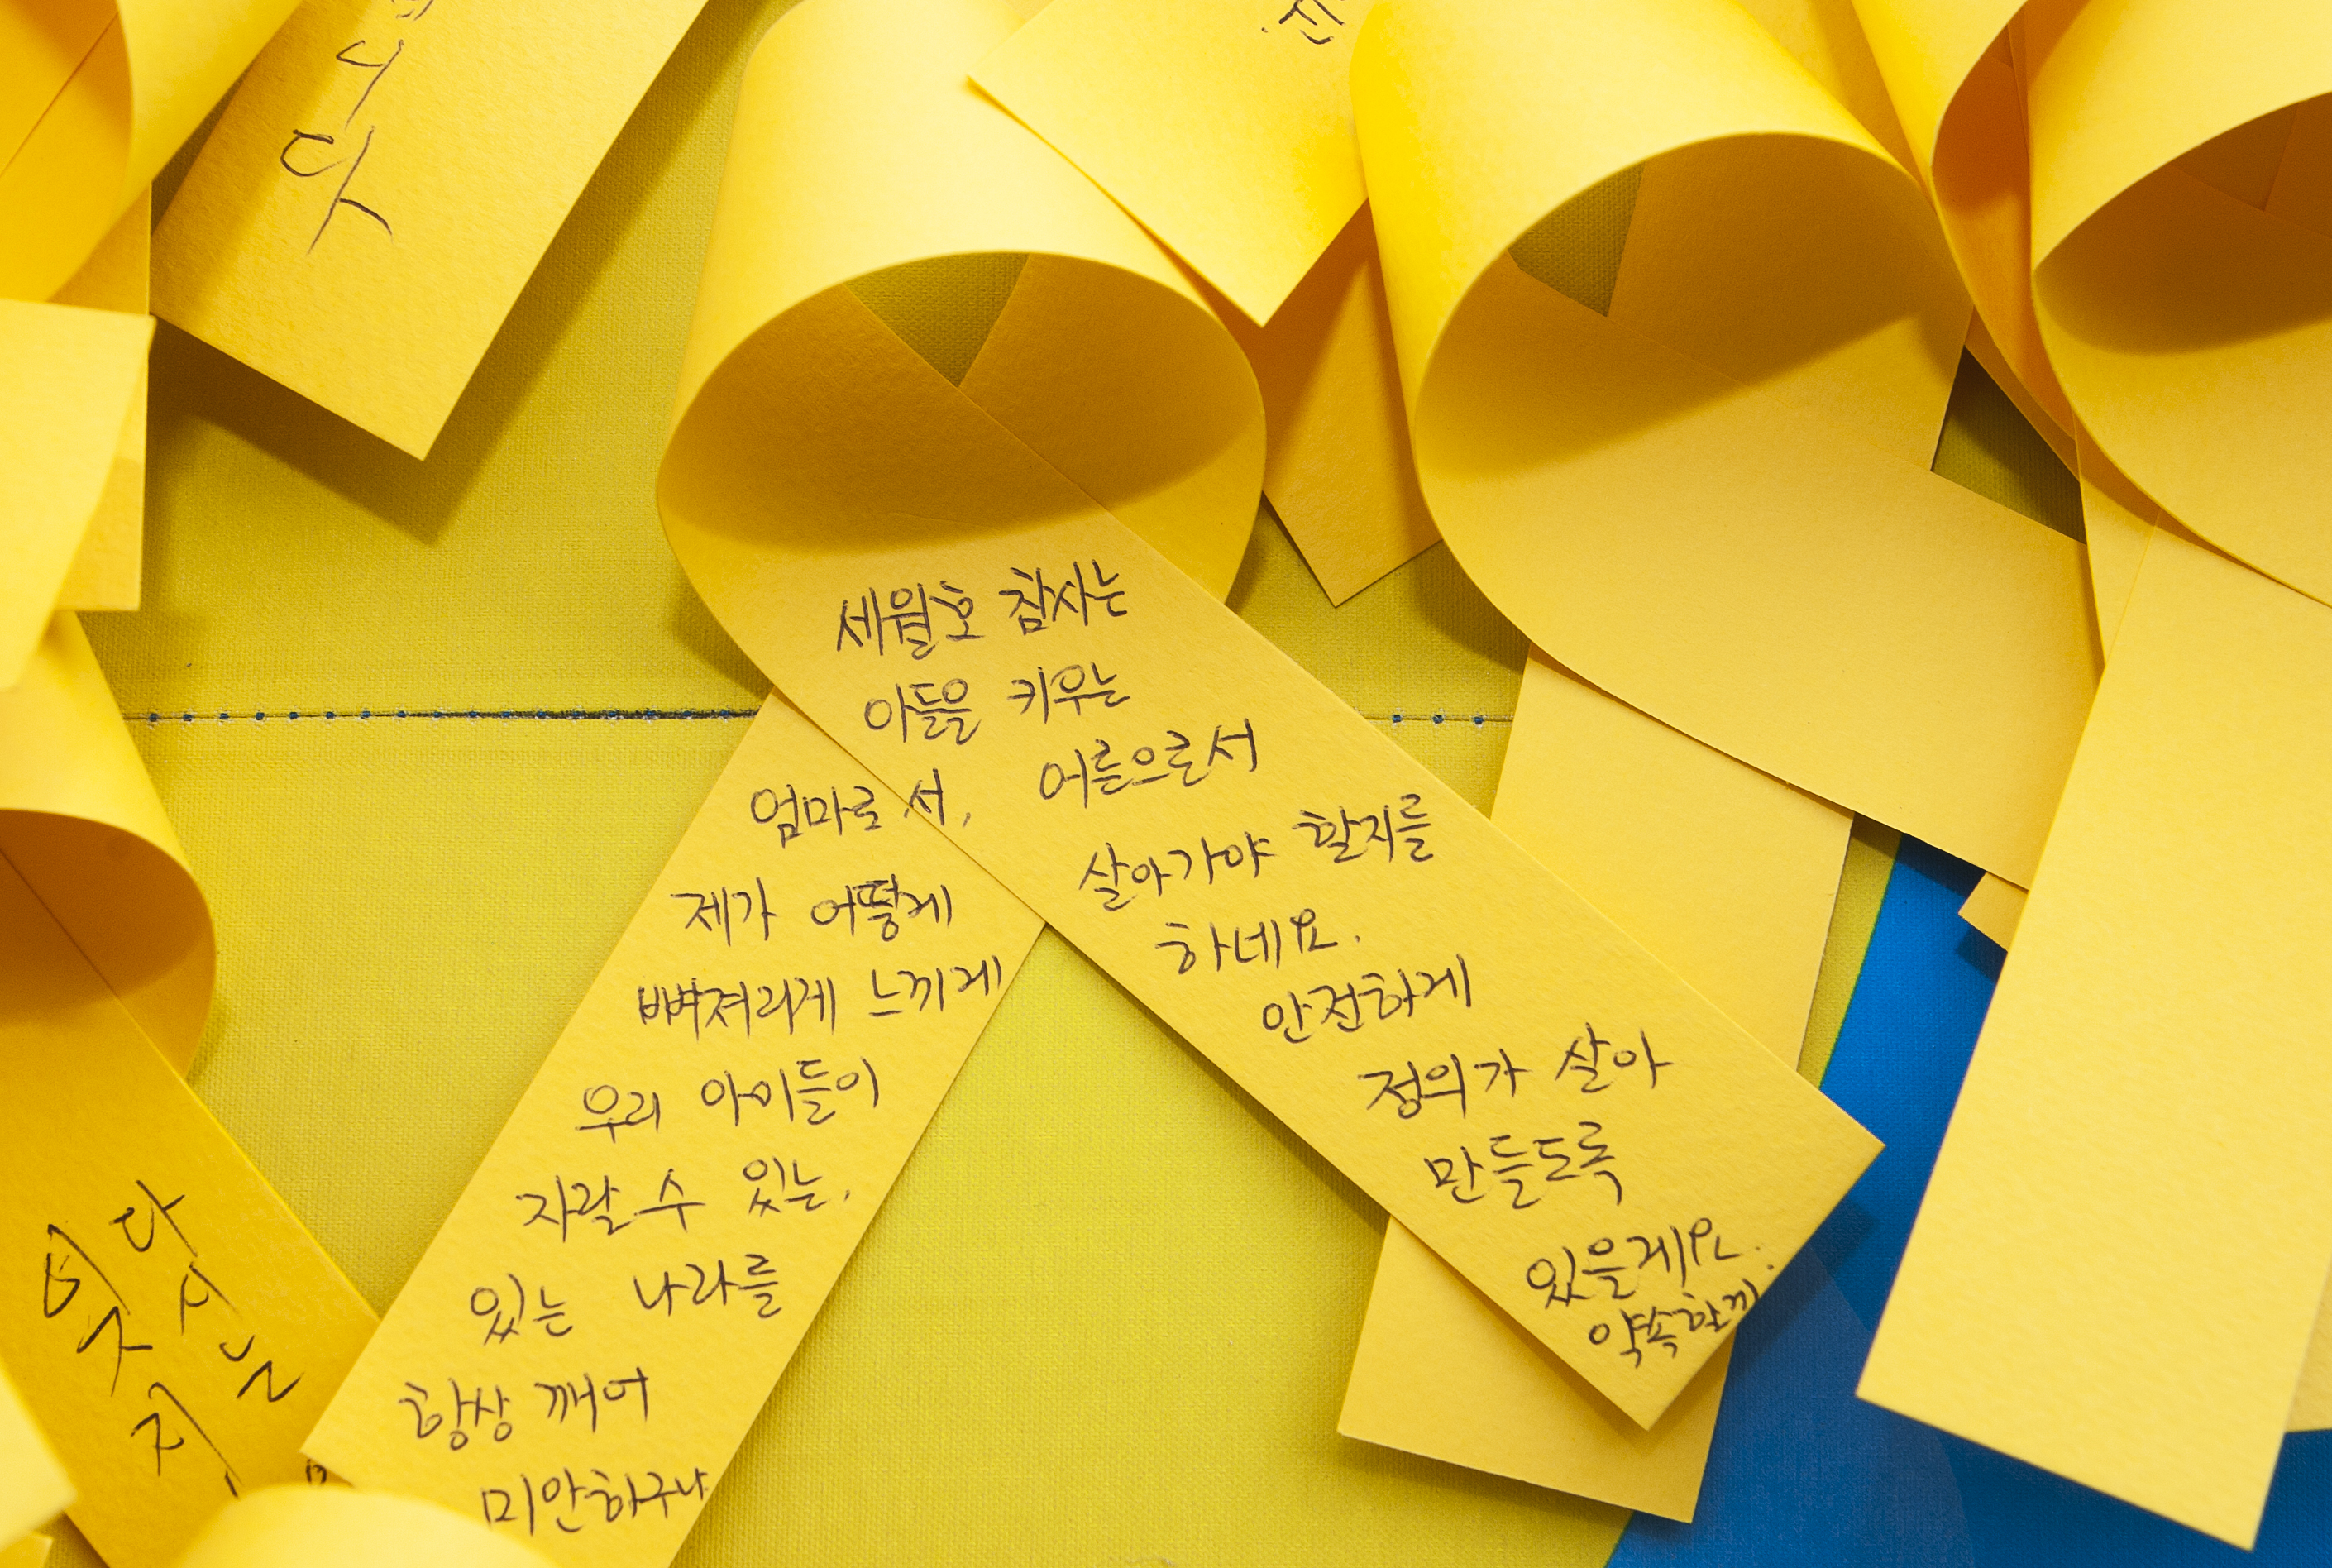 니다
세월호 참사는
아들을 키우는
엄마로서, 어른으로서
제가 어떻게 살아가야 할지를
뼈져리게 느끼게 하네요.
우리 아이들이 안전하게
자랄 수 있는, 정의가 살아
있는 나라를 만들도록
항상 깨어 있을게요.
미안하구나 약속할께
다시는
잊지